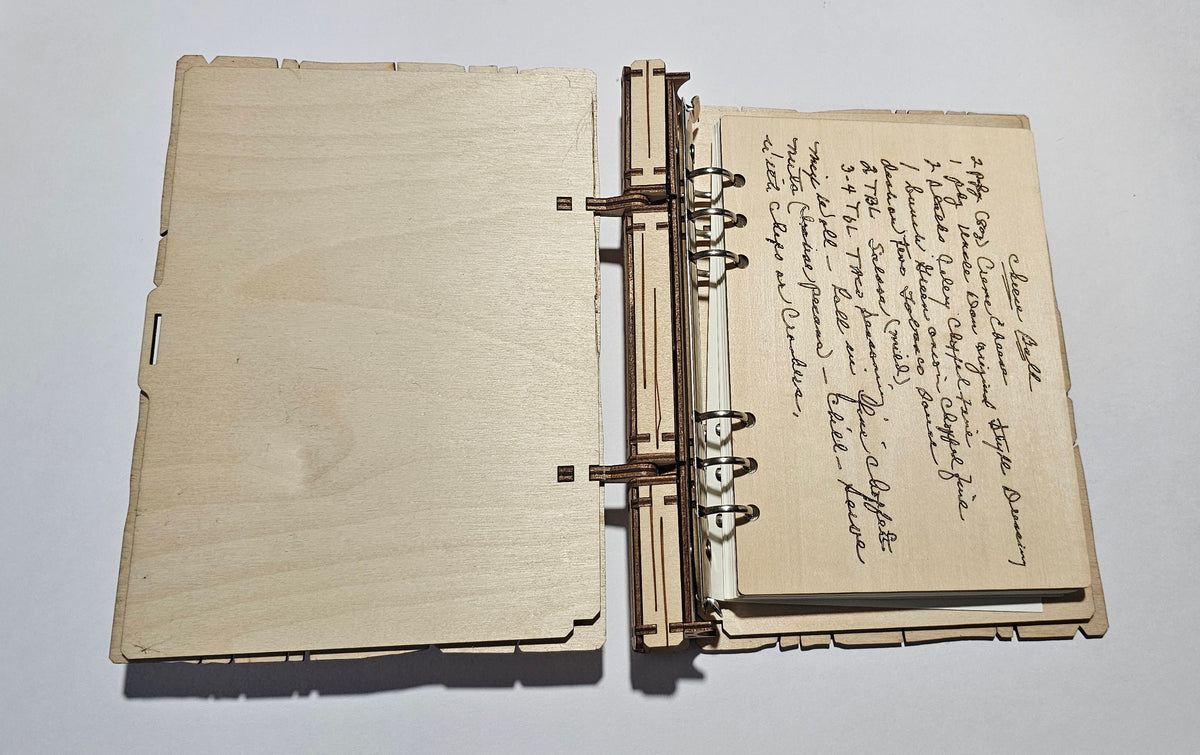 Cheese Ball
2 pkg (8oz) Creme Cheese
1 pkg Uncle Dan Original Style Dressing
2 stalks Celery chopped fine
1 bunch Green onion chopped fine
dash or two Tobasco Sauce
2 TBL Salsa (mild)
3-4 TBL Taco Seasoning
Mix Well - Roll in fine chopped
nuts (I use pecans) - Chill - Serve
with chips or Crackers.